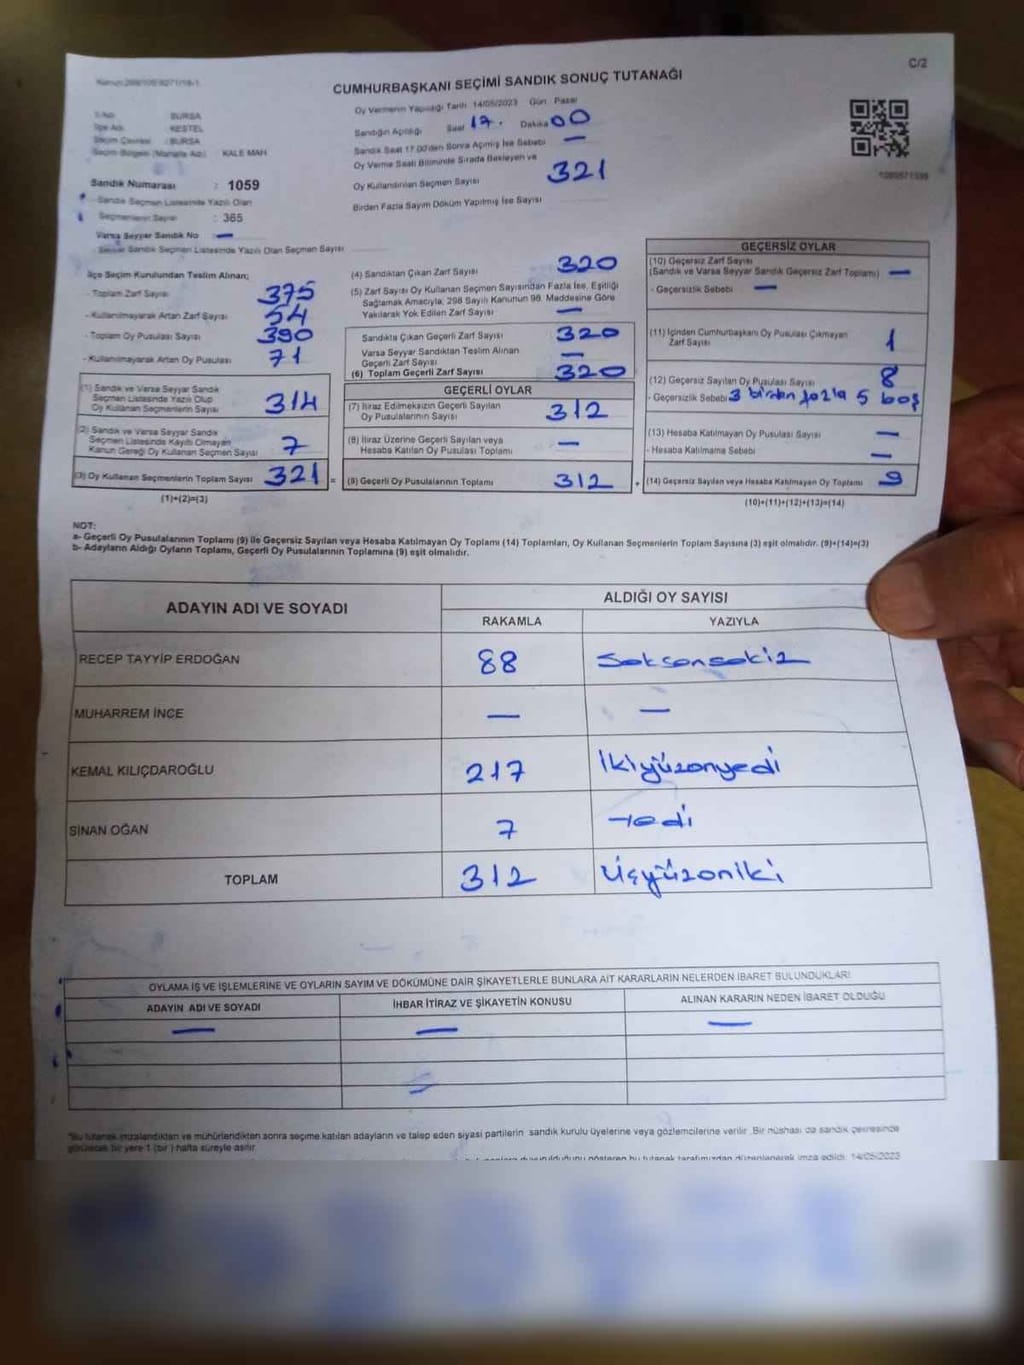 C/2
CUMHURBAŞKANI SEÇİMİ SANDIK SONUÇ TUTANAĞI
Oy Vermenin Yapıldığı Tarih 14/05/2023 Gün Pazar
Sandığın Açılışı Saat 17. Dakika 00
Sandık Saat 17.00'den Sonra Açılmış İse Sebebi —
Oy Verme Saati Bitiminde Sırada Bekleyen ve
Oy Kullandırılan Seçmen Sayısı 321
Birden Fazla Sayım Döküm Yapılmış İse Sayısı
İli Adı BURSA
İlçe Adı KESTEL
Seçim Çevresi : BURSA
Seçim Bölgesi (Mahalle Adı) KALE MAH
Sandık Numarası : 1059
- Sandık Seçmen Listesinde Yazılı Olan
Seçmenlerin Sayısı : 365
Varsa Seyyar Sandık No —
- Seyyar Sandık Seçmen Listesinde Yazılı Olan Seçmen Sayısı
İlçe Seçim Kurulundan Teslim Alınan;
- Toplam Zarf Sayısı 375
- Kullanılmayarak Artan Zarf Sayısı 54
- Toplam Oy Pusulası Sayısı 390
- Kullanılmayarak Artan Oy Pusulası 71
(1) Sandık ve Varsa Seyyar Sandık
Seçmen Listesinde Yazılı Olup
Oy Kullanan Seçmenlerin Sayısı 314
(2) Sandık ve Varsa Seyyar Sandık
Seçmen Listesinde Kayıtlı Olmayan
Kanun Gereği Oy Kullanan Seçmen Sayısı 7
(3) Oy Kullanan Seçmenlerin Toplam Sayısı 321 =
(1)+(2)=(3)
(4) Sandıktan Çıkan Zarf Sayısı 320
(5) Zarf Sayısı Oy Kullanan Seçmen Sayısından Fazla İse, Eşitliği
Sağlamak Amacıyla, 298 Sayılı Kanunun 98. Maddesine Göre
Yakılarak Yok Edilen Zarf Sayısı —
Sandıkta Çıkan Geçerli Zarf Sayısı 320
Varsa Seyyar Sandıktan Teslim Alınan
Geçerli Zarf Sayısı —
(6) Toplam Geçerli Zarf Sayısı 320
GEÇERLİ OYLAR
(7) İtiraz Edilmeksizin Geçerli Sayılan
Oy Pusulalarının Sayısı 312
(8) İtiraz Üzerine Geçerli Sayılan veya
Hesaba Katılan Oy Pusulası Toplamı —
(9) Geçerli Oy Pusulalarının Toplamı 312 +
GEÇERSİZ OYLAR
(10) Geçersiz Zarf Sayısı
(Sandık ve Varsa Seyyar Sandık Geçersiz Zarf Toplamı) —
- Geçersizlik Sebebi —
(11) İçinden Cumhurbaşkanı Oy Pusulası Çıkmayan
Zarf Sayısı 1
(12) Geçersiz Sayılan Oy Pusulası Sayısı 8
- Geçersizlik Sebebi 3 birden fazla 5 boş
(13) Hesaba Katılmayan Oy Pusulası Sayısı —
- Hesaba Katılmama Sebebi —
(14) Geçersiz Sayılan veya Hesaba Katılmayan Oy Toplamı 9
(10)+(11)+(12)+(13)=(14)
NOT:
a- Geçerli Oy Pusulalarının Toplamı (9) ile Geçersiz Sayılan veya Hesaba Katılmayan Oy Toplamı (14) Toplamları, Oy Kullanan Seçmenlerin Toplam Sayısına (3) eşit olmalıdır. (9)+(14)=(3)
b- Adayların Aldığı Oyların Toplamı, Geçerli Oy Pusulalarının Toplamına (9) eşit olmalıdır.
ADAYIN ADI VE SOYADI
ALDIĞI OY SAYISI
RAKAMLA YAZIYLA
RECEP TAYYİP ERDOĞAN 88 Seksensekiz
MUHARREM İNCE — —
KEMAL KILIÇDAROĞLU 217 İkiyüzonyedi
SİNAN OĞAN 7 Yedi
TOPLAM 312 Üçyüzoniki
OYLAMA İŞ VE İŞLEMLERİNE VE OYLARIN SAYIM VE DÖKÜMÜNE DAİR ŞİKAYETLERLE BUNLARA AİT KARARLARIN NELERDEN İBARET BULUNDUKLARI
ADAYIN ADI VE SOYADI İHBAR İTİRAZ VE ŞİKAYETİN KONUSU ALINAN KARARIN NEDEN İBARET OLDUĞU
— — —
*Bu tutanak imzalandıktan ve mühürlendikten sonra seçime katılan adayların ve talep eden siyasi partilerin sandık kurulu üyelerine veya gözlemcilerine verilir. Bir nüshası da sandık çevresinde
görülecek bir yere 1 (bir) hafta süreyle asılır.
bu tutanak tarafımızdan düzenlenerek imza edildi. 14/05/2023